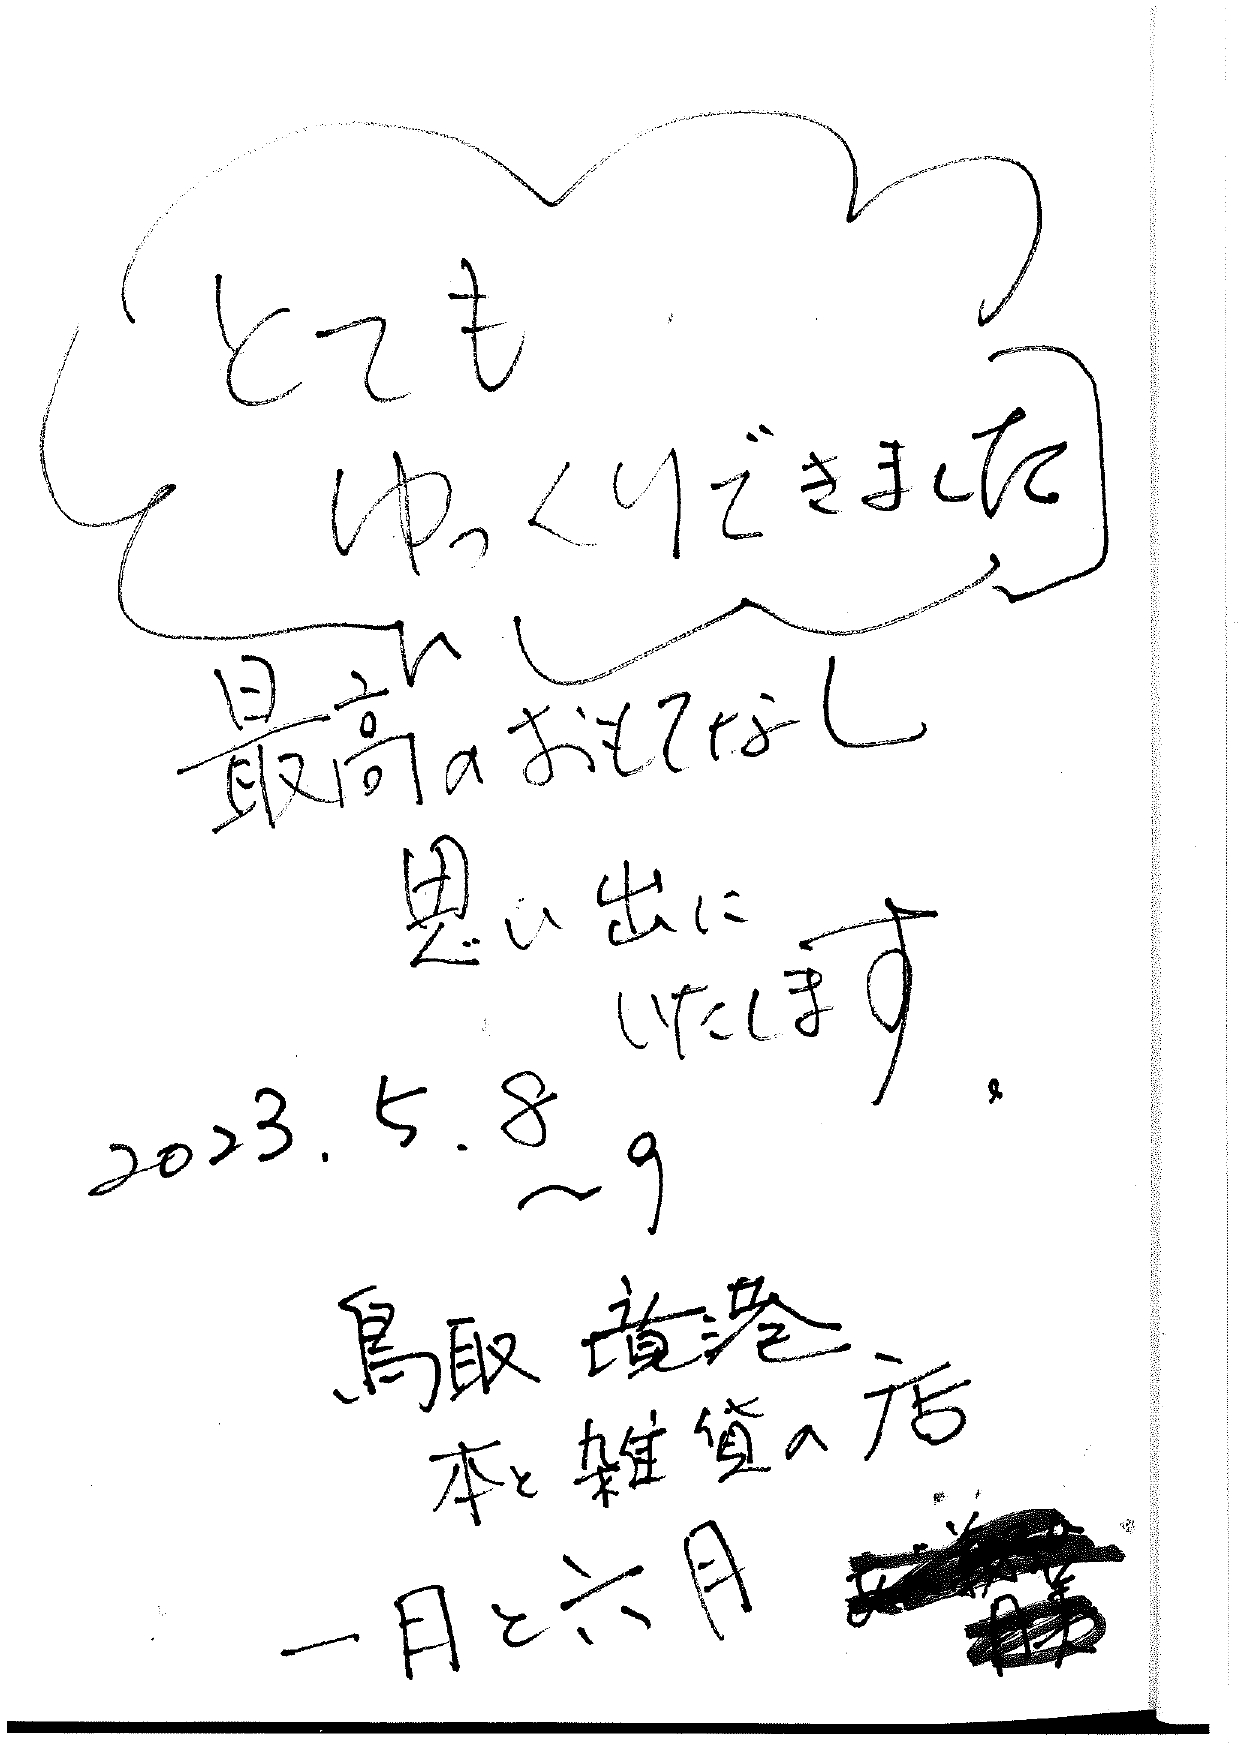 とても
ゆっくりできました
最高のおもてなし
思い出に
いたします。
2023.5.8
～9
鳥取 境港
本と雑貨の店
一月と六月